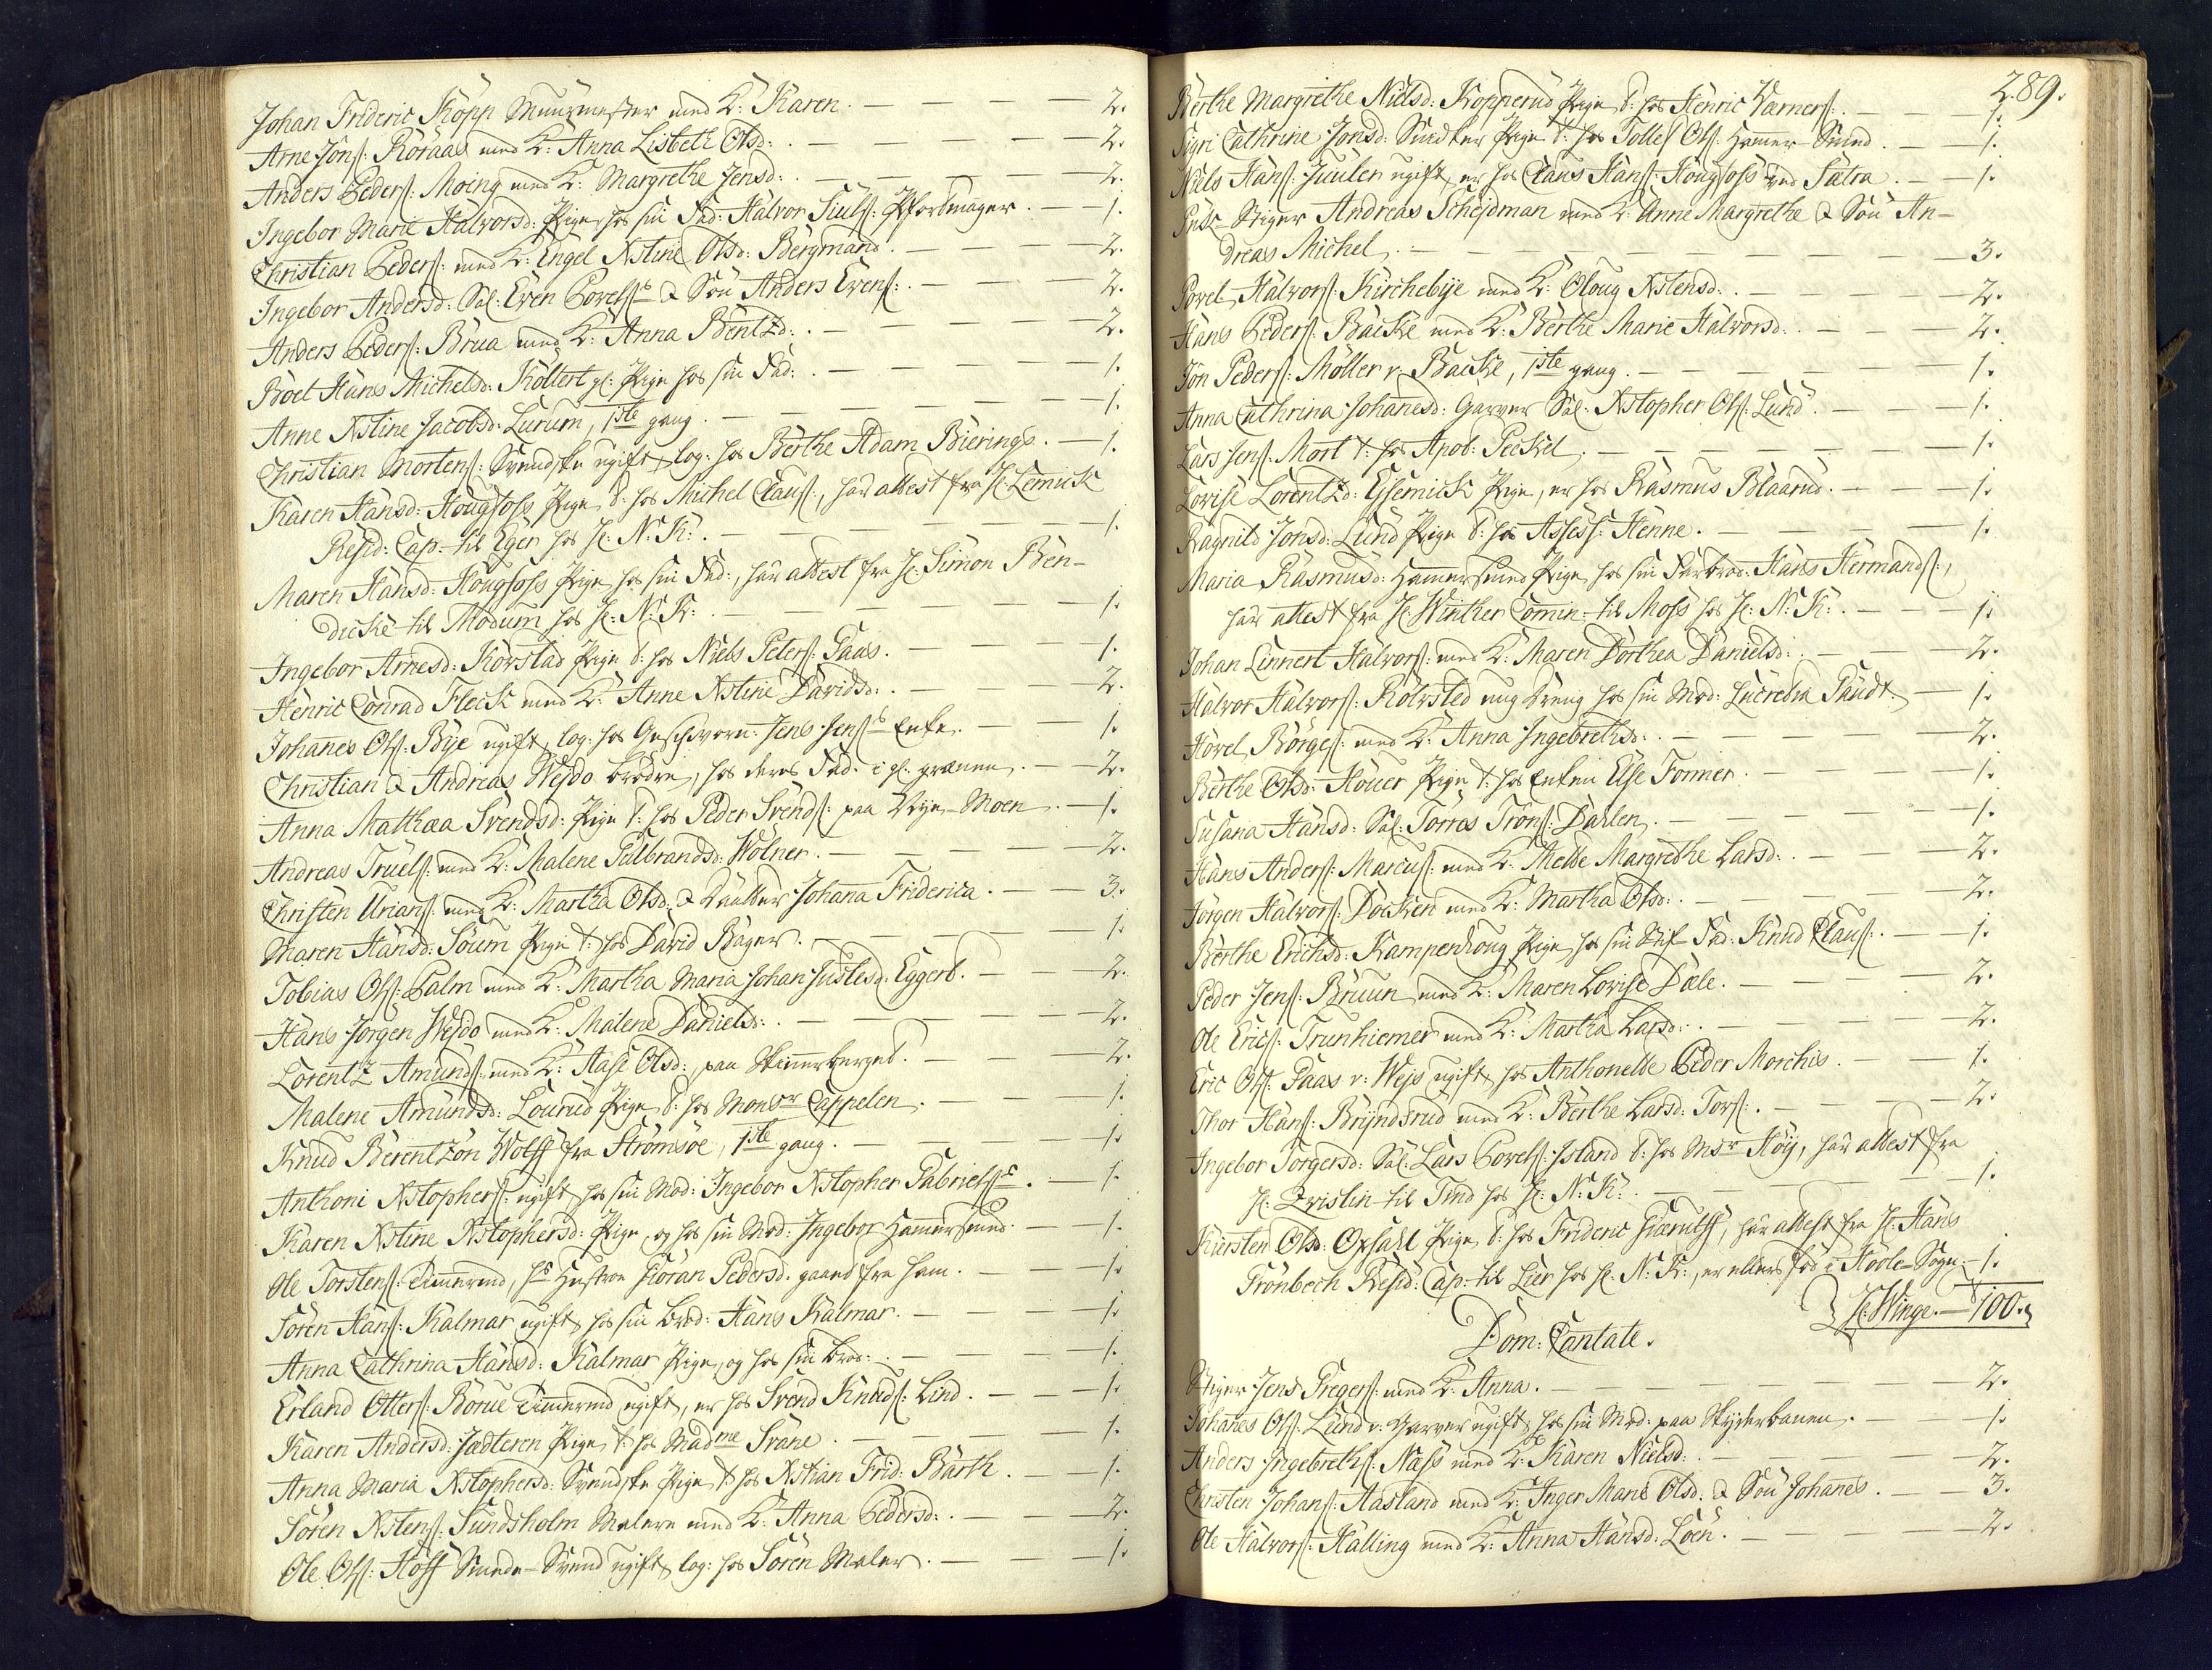 Johan Frideric Kopp Muurmester med K: Karen. — — — — 2.
Arne Jons: Röraas med K: Anna Lisbeth Olsd: . — — — — 2.
Anders Peders: Moeng med K: Margrethe Jensd: . — — — — 2.
Ingebor Marie Halvorsd: Pige hos sin Fad: Halvor Siuls: — — 1.
Christian Peders: med K: Engel Xstine Olsd: Bergmand. — — — 2.
Ingebor Andersd: Sal: Even Povels: & Søn Anders Evens: . — — — 2.
Anders Peders: Brua med K: Anna Bentzd: . — — — — 2.
Boel Hans Michelsd: Koltert gl: Pige hos sin Fad: . — — — — 1.
Anne Xstine Jacobsd: Lurum, 1ste gang. — — — — 1.
Christian Mortens: Svendske ugift, log: hos Berthe Adam Bierings. — 1.
Karen Hansd: Hougsoss Pige, t: hos Michel Claus:, har attest fra Hr: Lemick
Resid: Cap: til Eger hos Hr: N: K: . — — — — 1.
Maren Hansd: Hougsoss Pige hos sin Fad:, har attest fra Hr: Simon Ben-
dicke til Modum hos Hr: N: K: . — — — — 1.
Ingebor Arnesd: Korstad Pige t: hos Niels Peters: Gaas. — — — 1.
Henric Conrad Fleck med K: Anne Xstine Davidsd: . — — — 2.
Johanes Ols: Bye ugift, log: hos Geschvorn: Jens Jens: Enke. — — 1.
Christian & Andreas Wejdo brødre, hos deres Fad: i gl: gruuen. — — 2.
Anna Mathæa Svendsd: Pige t: hos Peder Svends: paa Nye-Moen. — 1.
Andreas Truels: med K: Malene Gulbrandsd: Wolner. — — — 2.
Christen Urians: med K: Martha Olsd: & Daatter Johana Friderica. — 3.
Maren Hansd: Soum Pige t: hos David Bager. — — — — 1.
Tobias Ols: Palm med K: Martha Maria Johan Justesd: Eggert. — — 2.
Hans Jørgen Wejdo med K: Malene Danielsd: . — — — — 2.
Lorentz Amunds: med K: Aase Olsd: paa Skinnerberget. — — — 2.
Malene Amundsd: Lourud Pige, t: hos Monsr Cappelen. — — — 1.
Knud Berentzøn Wolff fra Strømsøe, 1ste gang. — — — 1.
Anthoni Xstophers: ugift, hos sin Mod: Ingebor Xstopher Gabriels: . — 1.
Karen Xstine Xstophersd: Pige, og hos sin Mod: Ingebor Hamersmed. — 1.
Ole Torstens: Timermd, hs Hustroe Gøran Pedersd: gaaed fra ham. — — 1.
Søren Hans: Kalmar ugift, hos sin brod: Hans Kalmar. — — — 1.
Anna Cathrina Hansd: Kalmar Pige, og hos sin brod: . — — — 1.
Erland Otters: Borue Timermd ugift, er hos Svend Knuds: Lind. — — 1.
Karen Andersd: Jadteren Pige, t: hos Madme Svane. — — — 1.
Anna Maria Xstophersd: Svendske Pige, t: hos Xstian Frid: Barth. — 1.
Søren Xstens: Sundsholm Malere med K: Anna Pedersd: . — — — 2.
Ole Ols: Hoff Smede-Svend ugift, log: hos Søren Maler. — — — 1.
289.
Berthe Margrethe Nielsd: Kopperud Pige, t: hos Henric Varners: . — — 1.
Sigri Cathrine Jonsd: Pige t: hos Tollef Ols: Hamer-Smed. — — 1.
Niels Hans: Juulen ugift, er hos Claus Hans: Hougsoss ved Satra. — — 1.
Stiger Andreas Schejdman med K: Anne Margrethe & Søn An-
dreas Michel. — — — — 3.
Povel Halvors: Kirchebye med K: Oloug Xstensd: . — — — 2.
Hans Peders: Backe med K: Berthe Marie Halvorsd: . — — 2.
Jon Peders: Møller v: Backe, 1ste gang. — — — 1.
Anna Cathrina Johanesd: Garver Sal: Xstopher Ols: Lund. — — 1.
Lars Jens: Mort t: hos Apot: Peckel. — — — — 1.
Lovise Lorentzd: Gjemick Pige, er hos Rasmus Blaarud. — — 1.
Ragnild Jonsd: Lund Pige t: hos Assess: Henne. — — — 1.
Maria Rasmusd: Hamersmed Pige, hos sin Farbrod: Hans Hermands:,
har attest fra Hr: Winther Comin: til Moss hos Hr: N: K: . — — 1.
Johan Linnert Halvors: med K: Maren Dorthea Danielsd: . — — 2.
Halvor Halvors: Rolvsted ung dreng hos sin Mod: Lucretia Gaudt. — 1.
Hovel Børges: med K: Anna Ingebrethsd: . — — — — 2.
Berthe Olsd: Houer Pige t: hos Enken Else Forner. — — — 1.
Susana Hansd: Sal: Torros Trons: Dahlen. — — — — 1.
Hans Anders: Marcus: med K: Mette Margrethe Larsd: . — — 2.
Jørgen Halvors: Docken med K: Martha Olsd: . — — — 2.
Berthe Erichsd: Kampenhoug Pige, hos sin Stif-Fad: Knud Claus: . — — 1.
Peder Jens: Bruun med K: Maren Lovise Dæle. — — — 2.
Ole Erics: Trunhiemer med K: Martha Larsd: . — — — 2.
Eric Ols: Gaas v: Wejs ugift, hos Anthonette Peder Morchis. — — 1.
Thor Hans: Bryndsrud med K: Berthe Larsd: Tors: . — — 2.
Ingebor Torgersd: Sal: Lars Povels: Island t: hos Msr Høy, har attest fra
Hr: Qvislin til Tind hos Hr: N: K: . — — — 1.
Kiersten Olsd: Opsahl Pige, t: hos Frideric Giærulff, har attest fra Hr: Hans
Grønbech Resid: Cap: til Lier hos Hr: N: K:, er ellers fød i Hoole-Sogn. — 1.
Hr: Winge. — 100.
Dom: Cantate.
Stiger Jens Gregers: med K: Anna. — — — — 2.
Johanes Ols: Lund v: Garver ugift, hos sin Mod: paa Skyderbanen. — — 1.
Anders Ingebreths: Næss med K: Karen Nielsd: . — — — 2.
Christen Johans: Aasland med K: Inger Marie Olsd: & Søn Johanes. — — 3.
Ole Halvors: Halling med K: Anna Hansd: Loen. — — — 2.